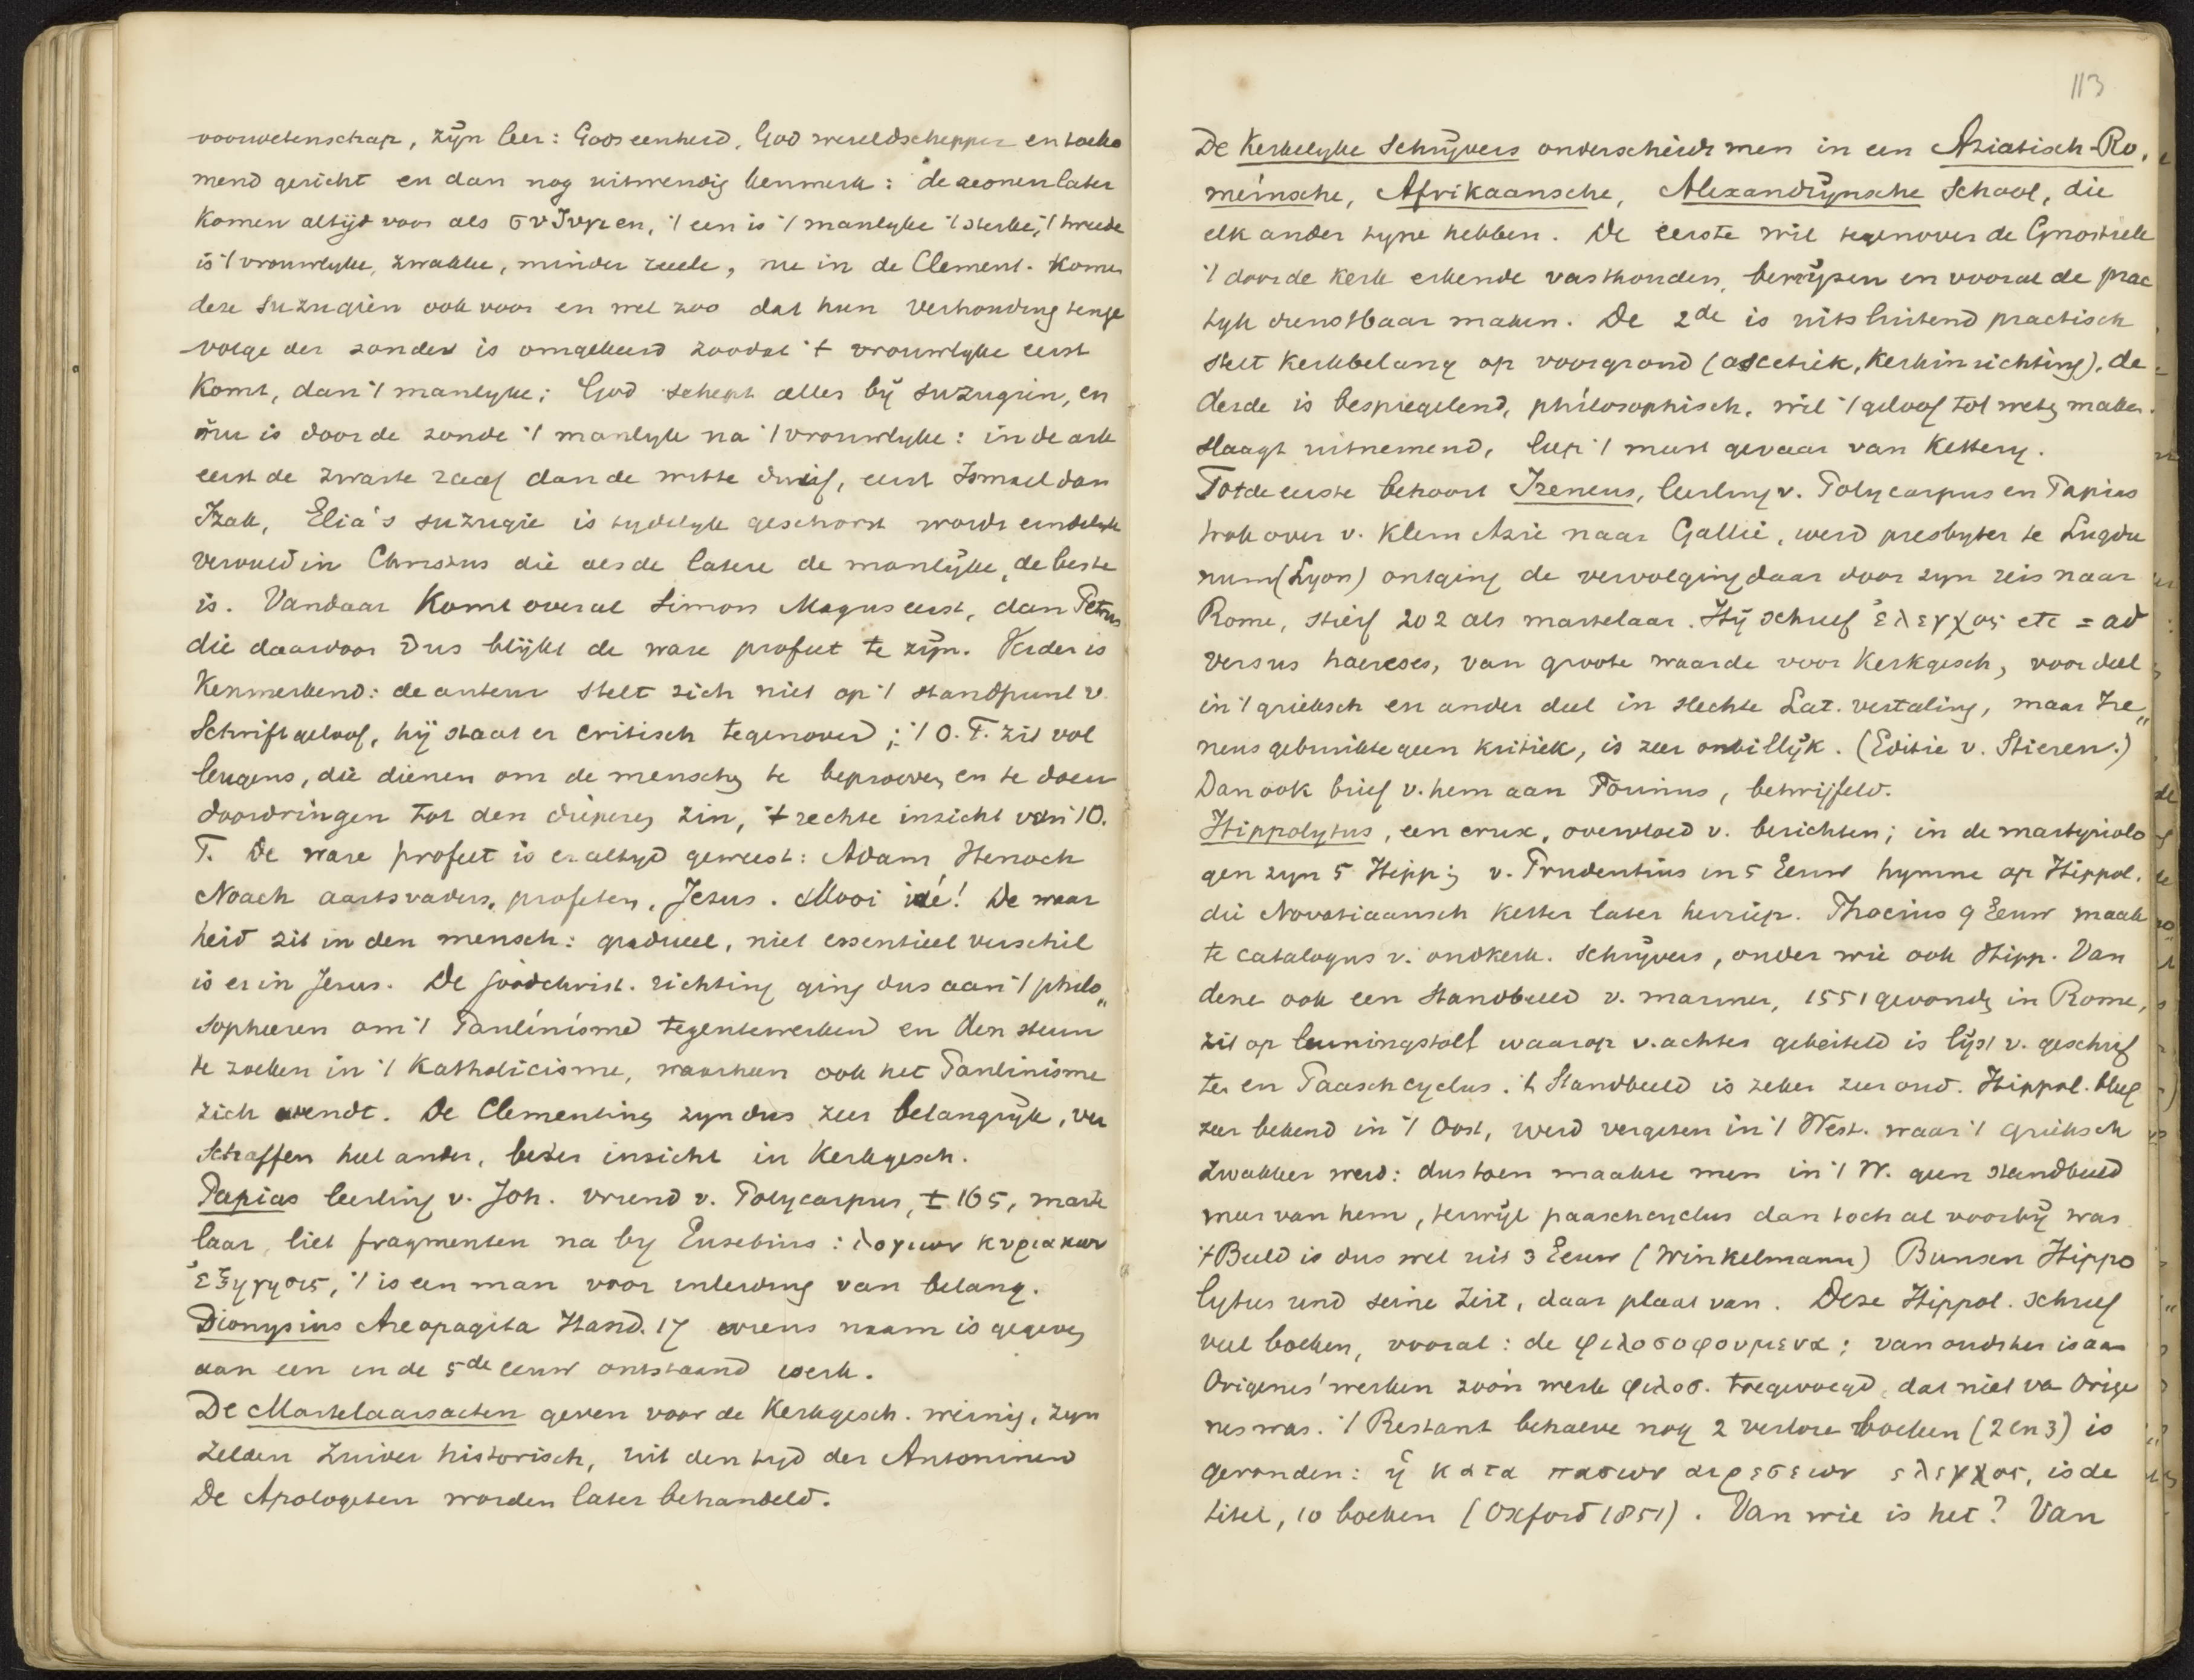 voorwetenschap, zijn leer: Gods eenheid, God wereldschepper en toeko
mend gericht en dan nog uitwendig kenmerk: de aeonen later
komen altijd voor als συζυγιen, 't een is 't manlyke 't sterke, 't tweede
is 't vrouwlyke, zwakke, minder reeele, nu in de Clement. komen
deze suzugiën ook voor en wel zoo dat hun verhouding tenge
volge der zonden is omgekeerd zoodat 't vrouwlyke eerst
komt, dan 't manlyke; God schept alles bij suzugiën, en
nu is door de zonde 't manlyk na 't vrouwlyke: in de ark
eerst de zwarte raaf dan de witte duif, eerst Ismael dan
Izak, Elia's suzugie is tydelyk geschorst wordt eindelyk
vervuld in Christus die als de latere de manlijke, de beste
is. Vandaar komt overal Simon Magus eerst, dan Petrus
die daardoor dus blijkt de ware profeet te zijn. Verder is
kenmerkend: de auteur stelt zich niet op 't standpunt v.
Schriftgeloof, hij staat er critisch tegenover; 't O.T. zit vol
leugens, die dienen om de menschen te beproeven en te doen
doordringen tot den dieperen zin, 't rechte inzicht van 't O.
T. De ware profeet is er altyd geweest: Adam Henoch
Noach aartsvaders, profeten, Jezus. Mooi idé! De waar
heid zit in den mensch: gradueel, niet essentieel verschil
is er in Jezus. De joodchrist. richting ging dus aan 't philo„
sopheeren om 't Paulinisme tegentewerken en den steun
te zoeken in 't Katholicisme, waarheen ook het Paulinisme
zich wendt. De Clementinen zyn dus zeer belangrijk, ver
schaffen heel ander, beter inzicht in Kerkgesch.
Papias leerling v. Joh. vriend v. Polycarpus, ± 165, marte
laar, liet fragmenten na by Eusebius: λογιων κυριακων
ἐξηγησις, 't is een man voor inleiding van belang.
Dionysius Areopagita Hand. 17 wiens naam is gegeven
aan een in de 5de eeuw ontstaand werk.
De Martelaarsacten geven voor de Kerkgesch. weinig, zyn
zelden zuiver historisch, uit den tyd der Antoninen
De Apologeten worden later behandeld.
113
De Kerkelyke Schrijvers onderscheidt men in een Aziatisch-Ro,
meinsche, Afrikaansche, Alexandrijnsche School, die
elk ander type hebben. De eerste wil tegenover de Gnostiek
't door de kerk erkende vasthouden, bewijzen en vooral de prac
tyk dienstbaar maken. De 2de is uitsluitend practisch
stelt kerkbelang op voorgrond (ascetiek, kerkinrichting), de
derde is bespiegelend, philosophisch, wil 't geloof tot weten maken.
slaagt uitnemend, liep 't meest gevaar van kettery.
Tot de eerste behoort Ireneus, leerling v. Polycarpus en Papias
trok over v. Klein Azie naar Gallië, werd presbyter te Lugdu
num (Lyon) ontging de vervolging daar door zyn reis naar
Rome, stierf 202 als martelaar. Hij schreef ἐλεγχος etc = ad
versus haereses, van groote waarde voor Kerkgesch, voor deel
in 't grieksch en ander deel in slechte Lat. vertaling, maar Ire„
neus gebruikte geen kritiek, is zeer onbillijk. (Editie v. Stieren.)
Dan ook brief v. hem aan Florinus, betwijfeld.
Hippolytus, een crux, overvloed v. berichten; in de martyrolo
gen zyn 5 Hipp; v. Prudentius in 5 Eeuw hymne op Hippol.
die Novatiaansch ketter later herriep. Phocius 9 Eeuw maak
te catalogus v. oudkerk. schrijvers, onder wie ook Hipp. Van
deze ook een standbeeld v. marmer, 1551 gevonden in Rome,
zit op leuningstoel waarop v. achter gebeiteld is lijst v. geschrif
ten en Paaschcyclus. 't Standbeeld is zeker zeer oud. Hippol. bleef
zeer bekend in 't Oost, werd vergeten in 't West. waar 't grieksch
zwakker werd: dus toen maakte men in 't W. geen standbeeld
meer van hem, terwijl paaschcyclus dan toch al voorbij was
't Beeld is dus wel uit 3 Eeuw (Winkelmann) Bunsen Hippo
lytus und seine Zeit, daar plaat van. Deze Hippol. schreef
veel boeken, vooral: de φιλοσοφουμενα; van oudsher is aan
Origenes' werken zoo'n werk φιλοσ. toegevoegd, dat niet va Orige
nes was. 't Restant behalve nog 2 verlore boeken (2 en 3) is
gevonden: ἡ κατα πασων αιρεσεων ελεγχος, is de
titel, 10 boeken (Oxford 1851). Van wie is het? Van